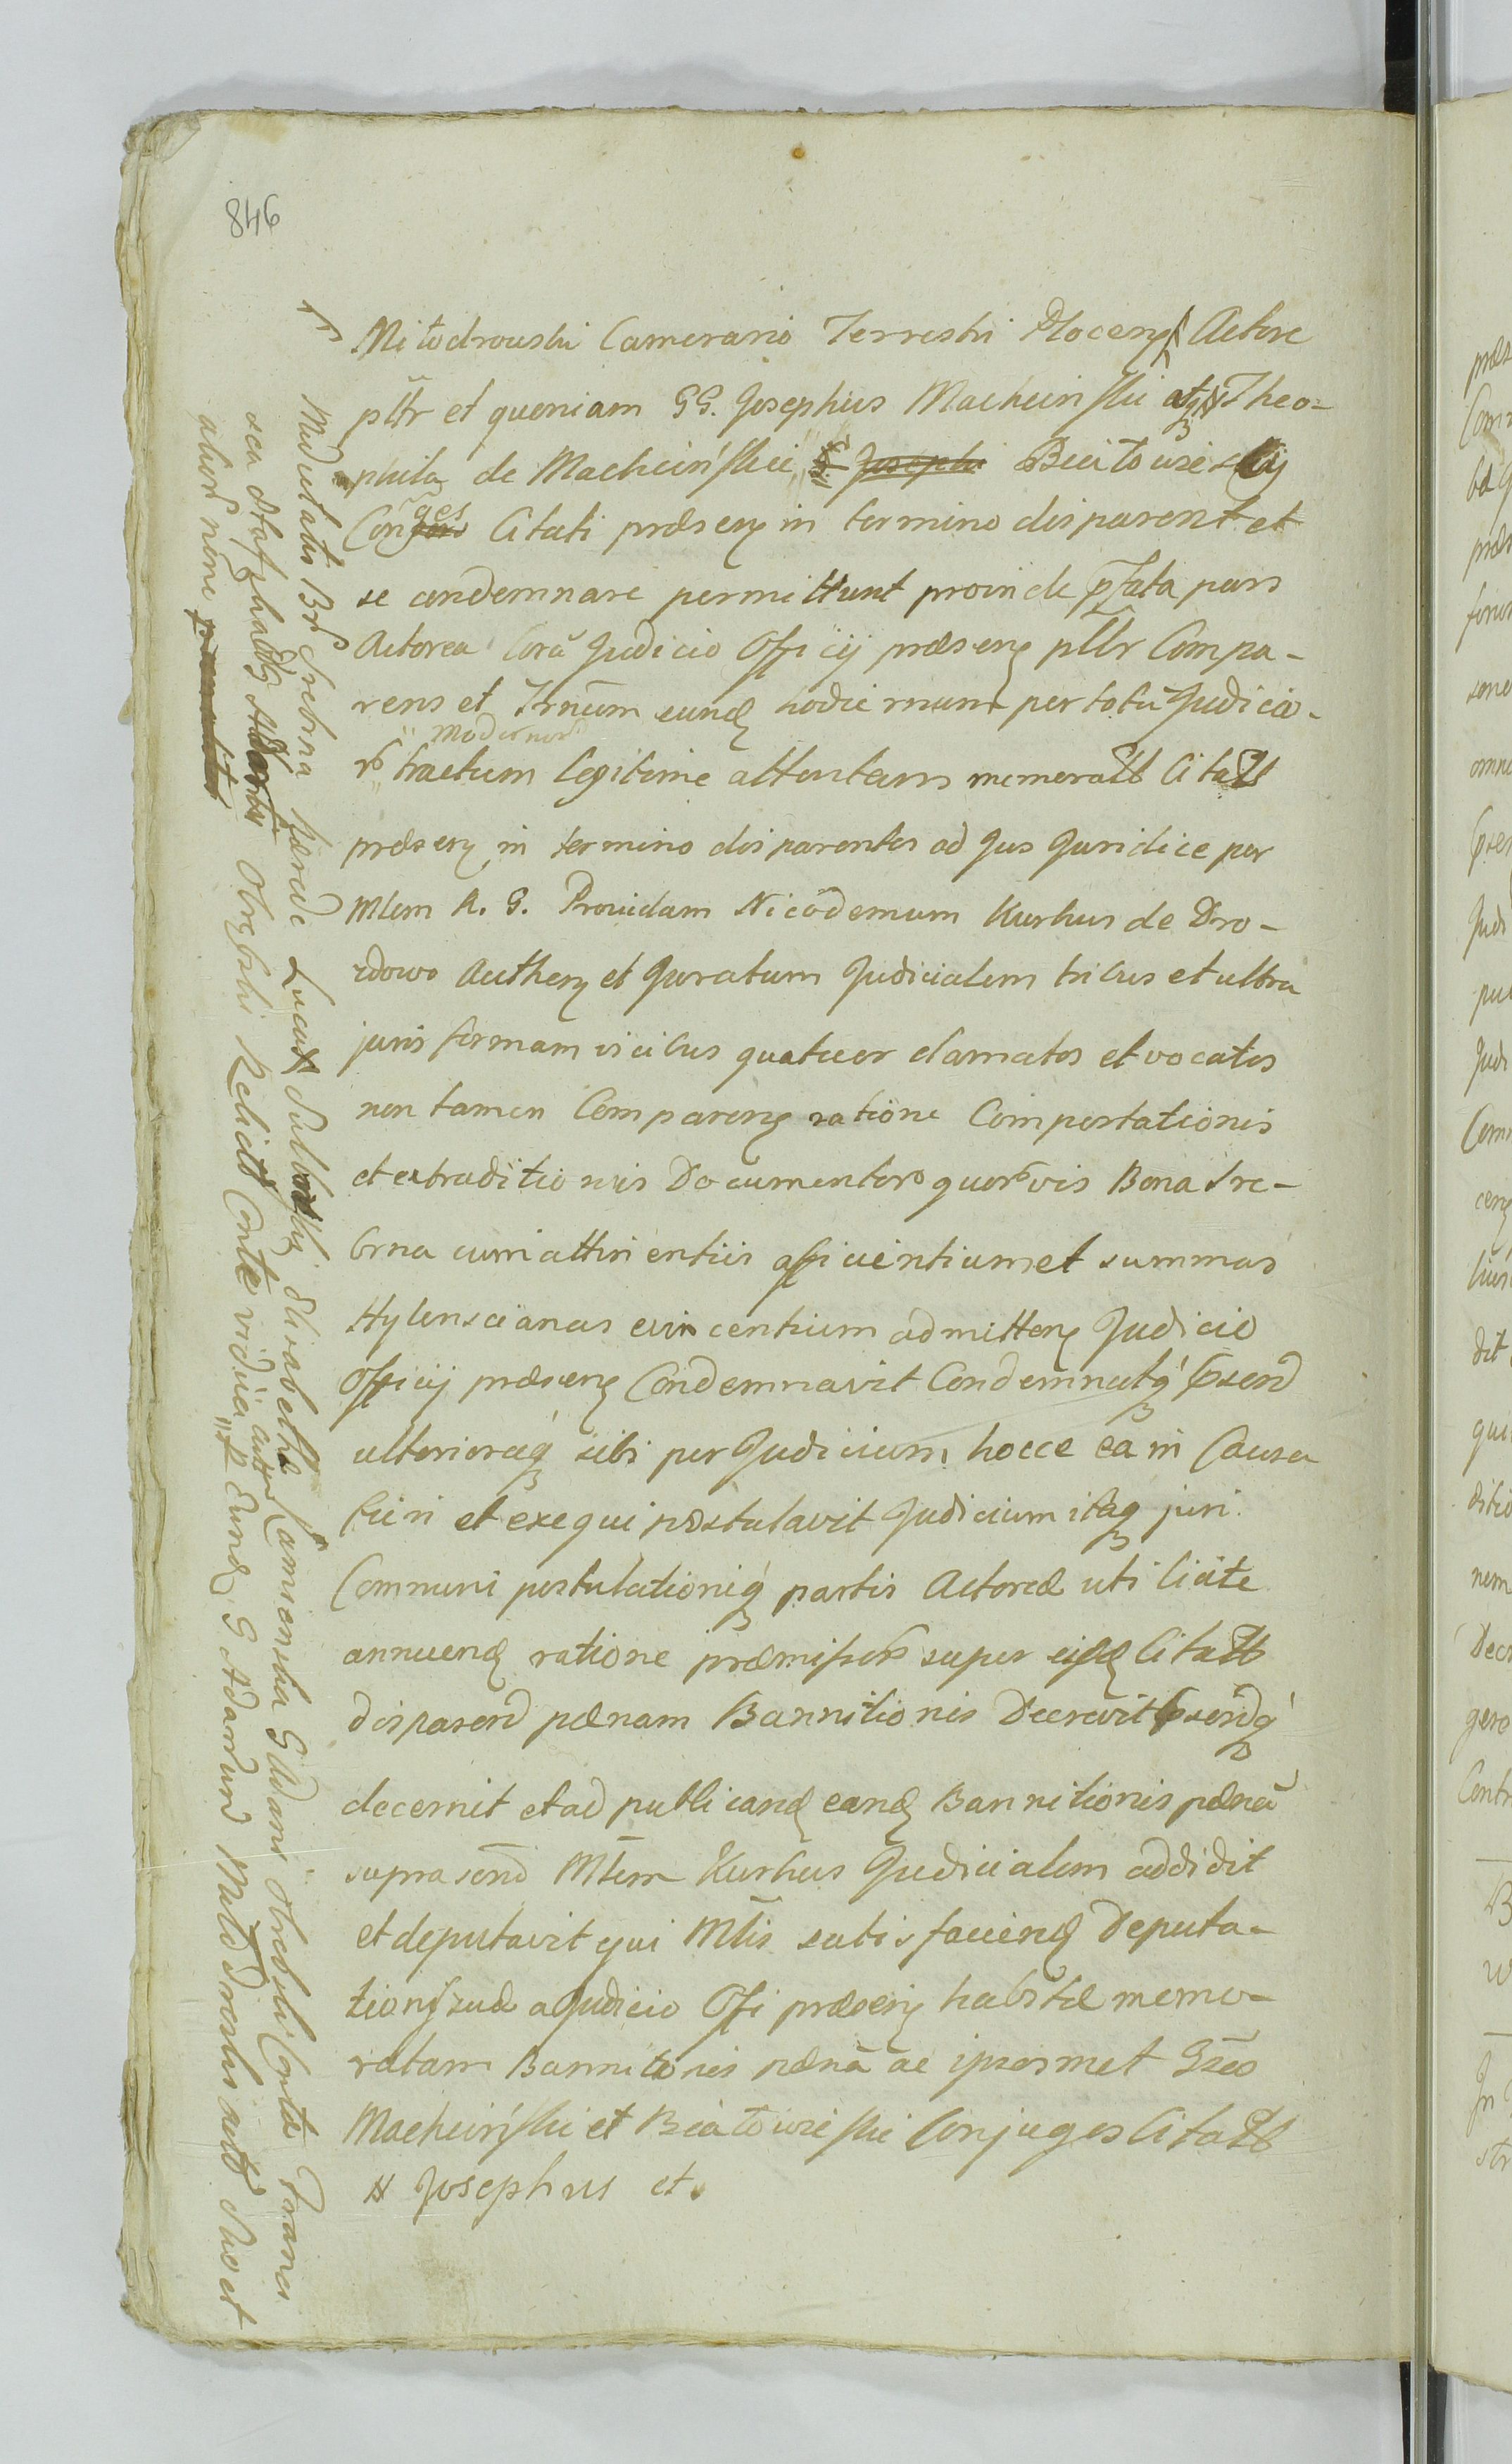 846
Miłodrowski Camerario Terrestri Plocens Actore
pltr et quoniam GG. Josephus Macheiński atq Theo-
phila de Machcińskie Josephi Białowieski
Conjuges Citati præsens in termino disparent et
se condemnare permittunt proinde pfata pars
Actorea Corā Judicio Officij præsens pltr Compa-
rens et Trnūm eund hodiernum per totū Judicio-
rō modernor tractum legitime attentans memoratt Citatt
præsens in termino disparentes ad Jus Juridice per
Mlem R. G. Providum Nicodemum Kurkus de Dro-
zdowo Authen et Juratum Judicialem tribus et ultra
juris formam vicibus quatuor clamatos et vocatos
non tamen Comparens ratione Comportationis
et extraditionis Documentoro quorvis Bona Sre-
brna cum attinentiis afficientium et summas
Hylenscianas evincentium admittens Judicio
Officij præsens Condemnavit Condemnatq
ulterioraq sibi per Judicium hocce eā in Causa
fieri et exequi postulavit Judicium itaq juri
Communi postulationiq partis Actoreæ uti licite
annuend ratione præmissor super eisd Citatt
disparend pænam Bannitionis Decrevit
decernit et ad publicand eand Bannitionis pænā
supra send Mlem Kurkus Judicialem addidit
et deputavit qui Mlis satisfaciend Deputa-
tioni suæ a Judicio Offi præsens habitæ memo-
ratam Bannitionis pænā ac ipsosmet Gzeo
Macheiński et Białowieskie Conjuges Citatt
# Josephus et
Medietatis Bon Srebrna hærede Lucas Elisabetha Camienska G Adami Obrębski Conte Franc
Obrębski Relicta Conte vidua Eund G Adamum Miłodroski actt Suo et
alior nōne